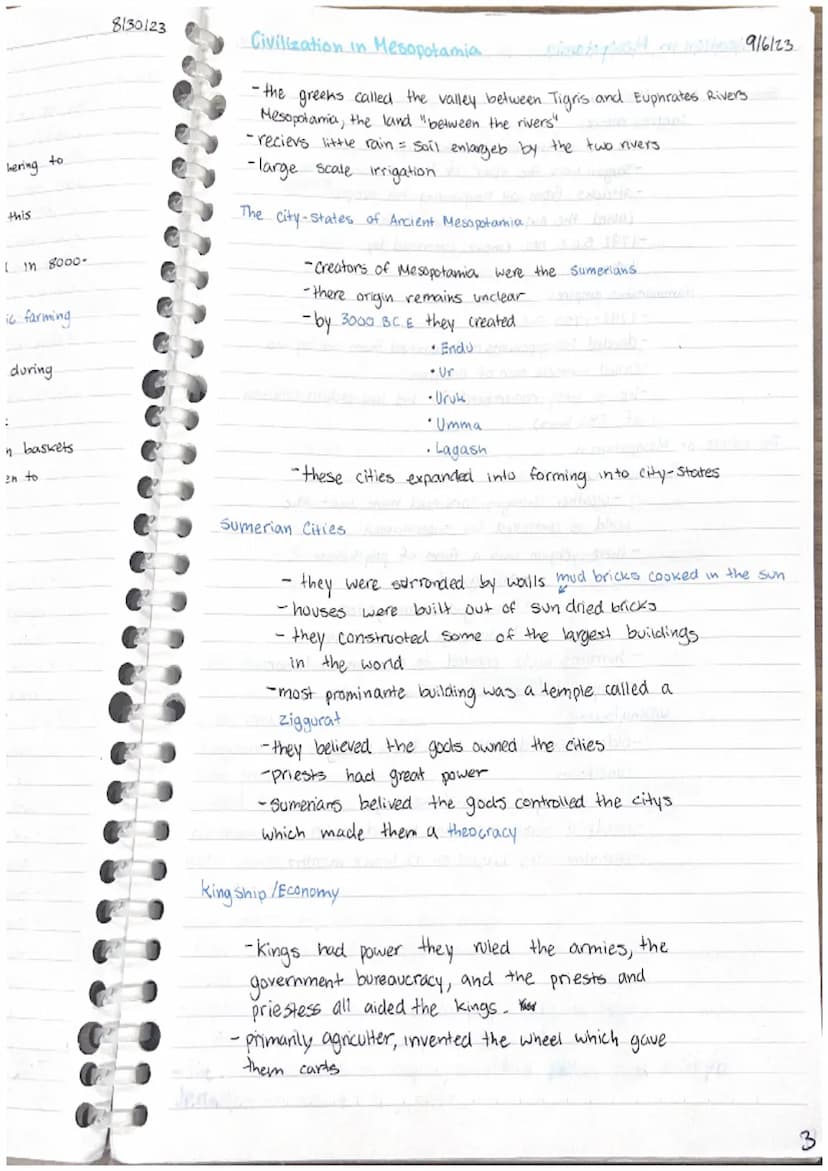 8/30/23
hering to
this
in 8000-
ic farming
during
:
baskets
en to
Civilization in Mesopotamia
9/6/23
-the greeks called the valley between Tigris and Euphrates Rivers
Mesopotamia, the land "between the rivers"
-recievs little rain = soil enlargeb by the two rivers
-large scale irrigation
The City-States of Ancient Mesopotamia
-Creators of Mesopotamia were the Sumerians
-there origin remains unclear
-by 3000 B.C.E they created
• Endu
• Ur
• Uruk
• Umma
• Lagash
-these cities expanded into forming into city-states
Sumerian Cities
- they were surronded by walls mud bricks cooked in the sun
- houses were built out of sun dried bricks
- they constructed some of the largest buildings
in the world
-most prominante building was a temple called a
ziggurat
-they believed the gods owned the cities
-priests had great power
-Sumerians belived the gods controlled the citys
which made them a theocracy
kingship/Economy
-kings had power they ruled the armies, the
government bureaucracy, and the priests and
priestess all aided the kings.
- primarily agriculter, invented the wheel which gave
them carts
3